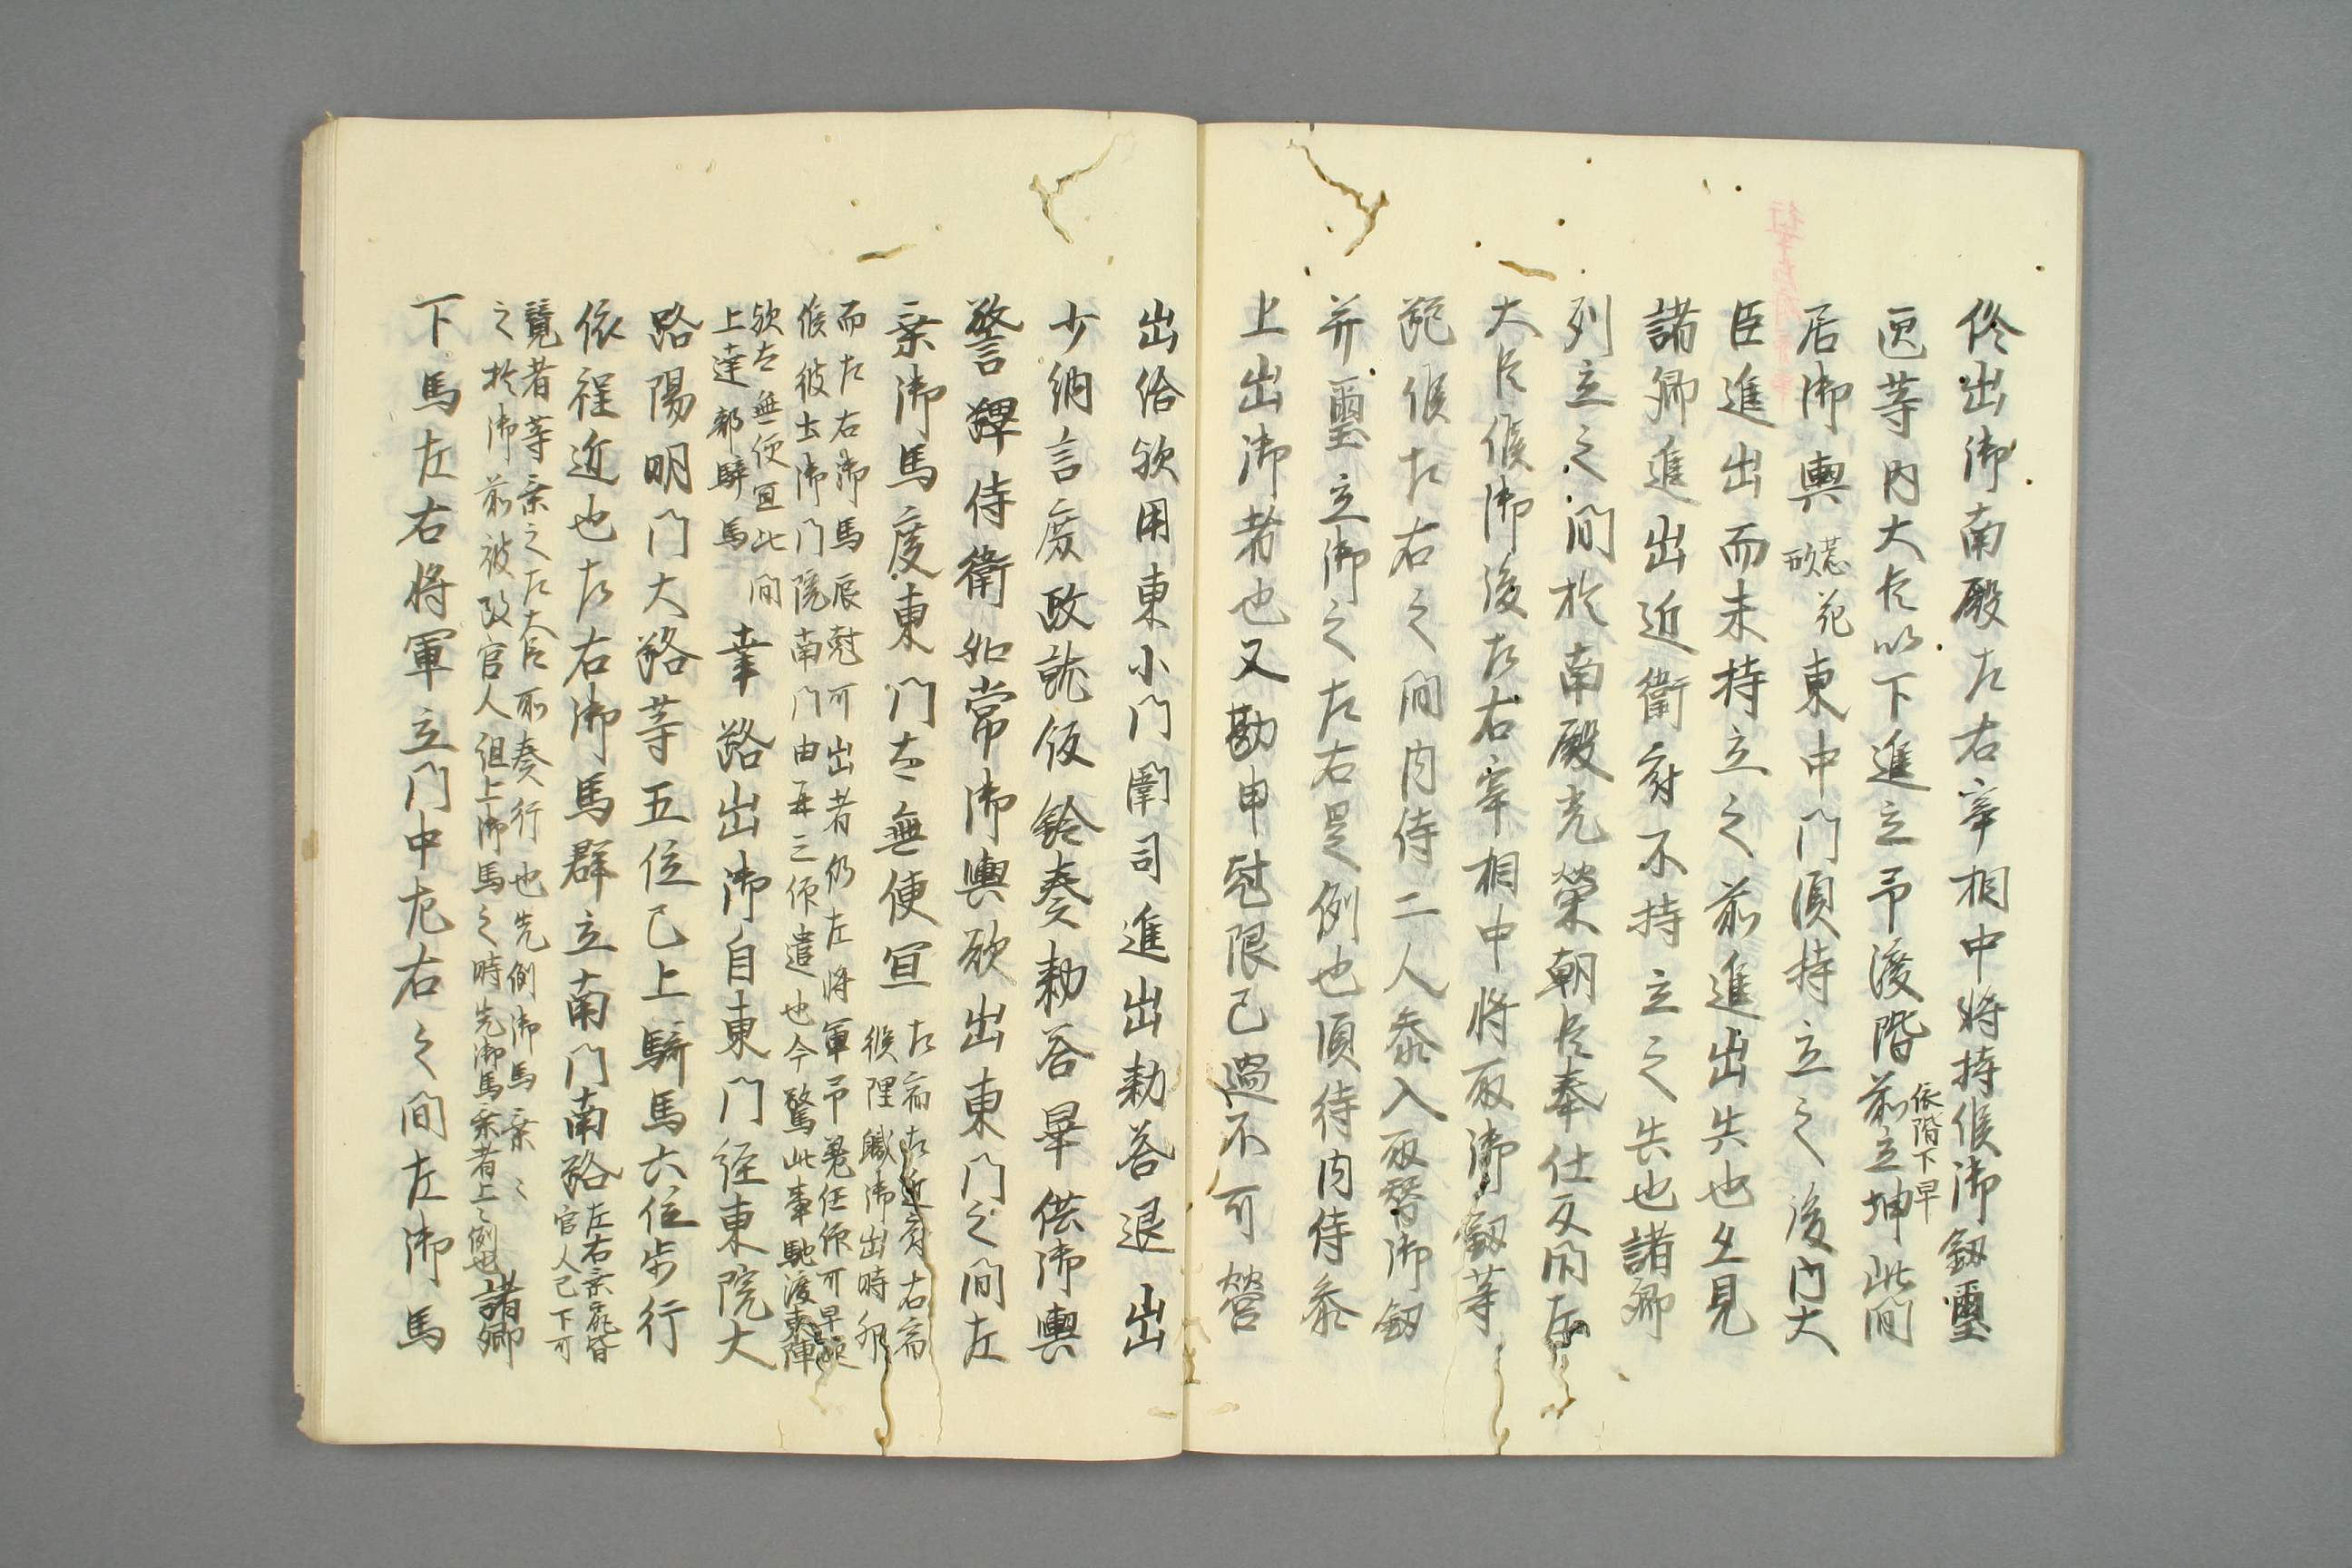 佟出御南殿左右宰相中将持候御釼璽
迊等内大臣以下進立予渡階前立坤此間
依階下早
居御輿葱花歟東中門須持立之後内大
臣進出而未持立之前進出失也夕見
諸卿進出近衛府不持立之失也諸卿
列立之間於南殿光榮朝臣奉仕反閇左
大臣候御後左右宰相中将取御釼等
跪候左右之間内侍二人参入取替御釼
并璽立御之左右是例也須待内侍参
上出御者也又勘申尅限已過不可營
出給歟用東小門闈司進出勅荅退出
少納言庶政就版鈴奏勅荅畢供御輿
警蹕侍衛如常御輿欲出東門之間左
乗御馬度東門太無便宜
左府左近府右府
候陣職御出時
而左右御馬辰尅可出者仍左将軍予
候彼土御門院南門由再三仰遣也今驚此事馳渡東陣
歟太無便宜此間
上達部騎馬
幸路出御自東門經東院大
路陽明門大路等五位已上騎馬六位歩行
依程近也左右御馬群立南門南路
左右乗
官人已下可
覧者等乗之左大臣所奏行也先例御馬乗
之於御前被改官人但上御馬之時先御馬乗者上之例也諸卿
下馬左右将軍立門中左右之間左御馬